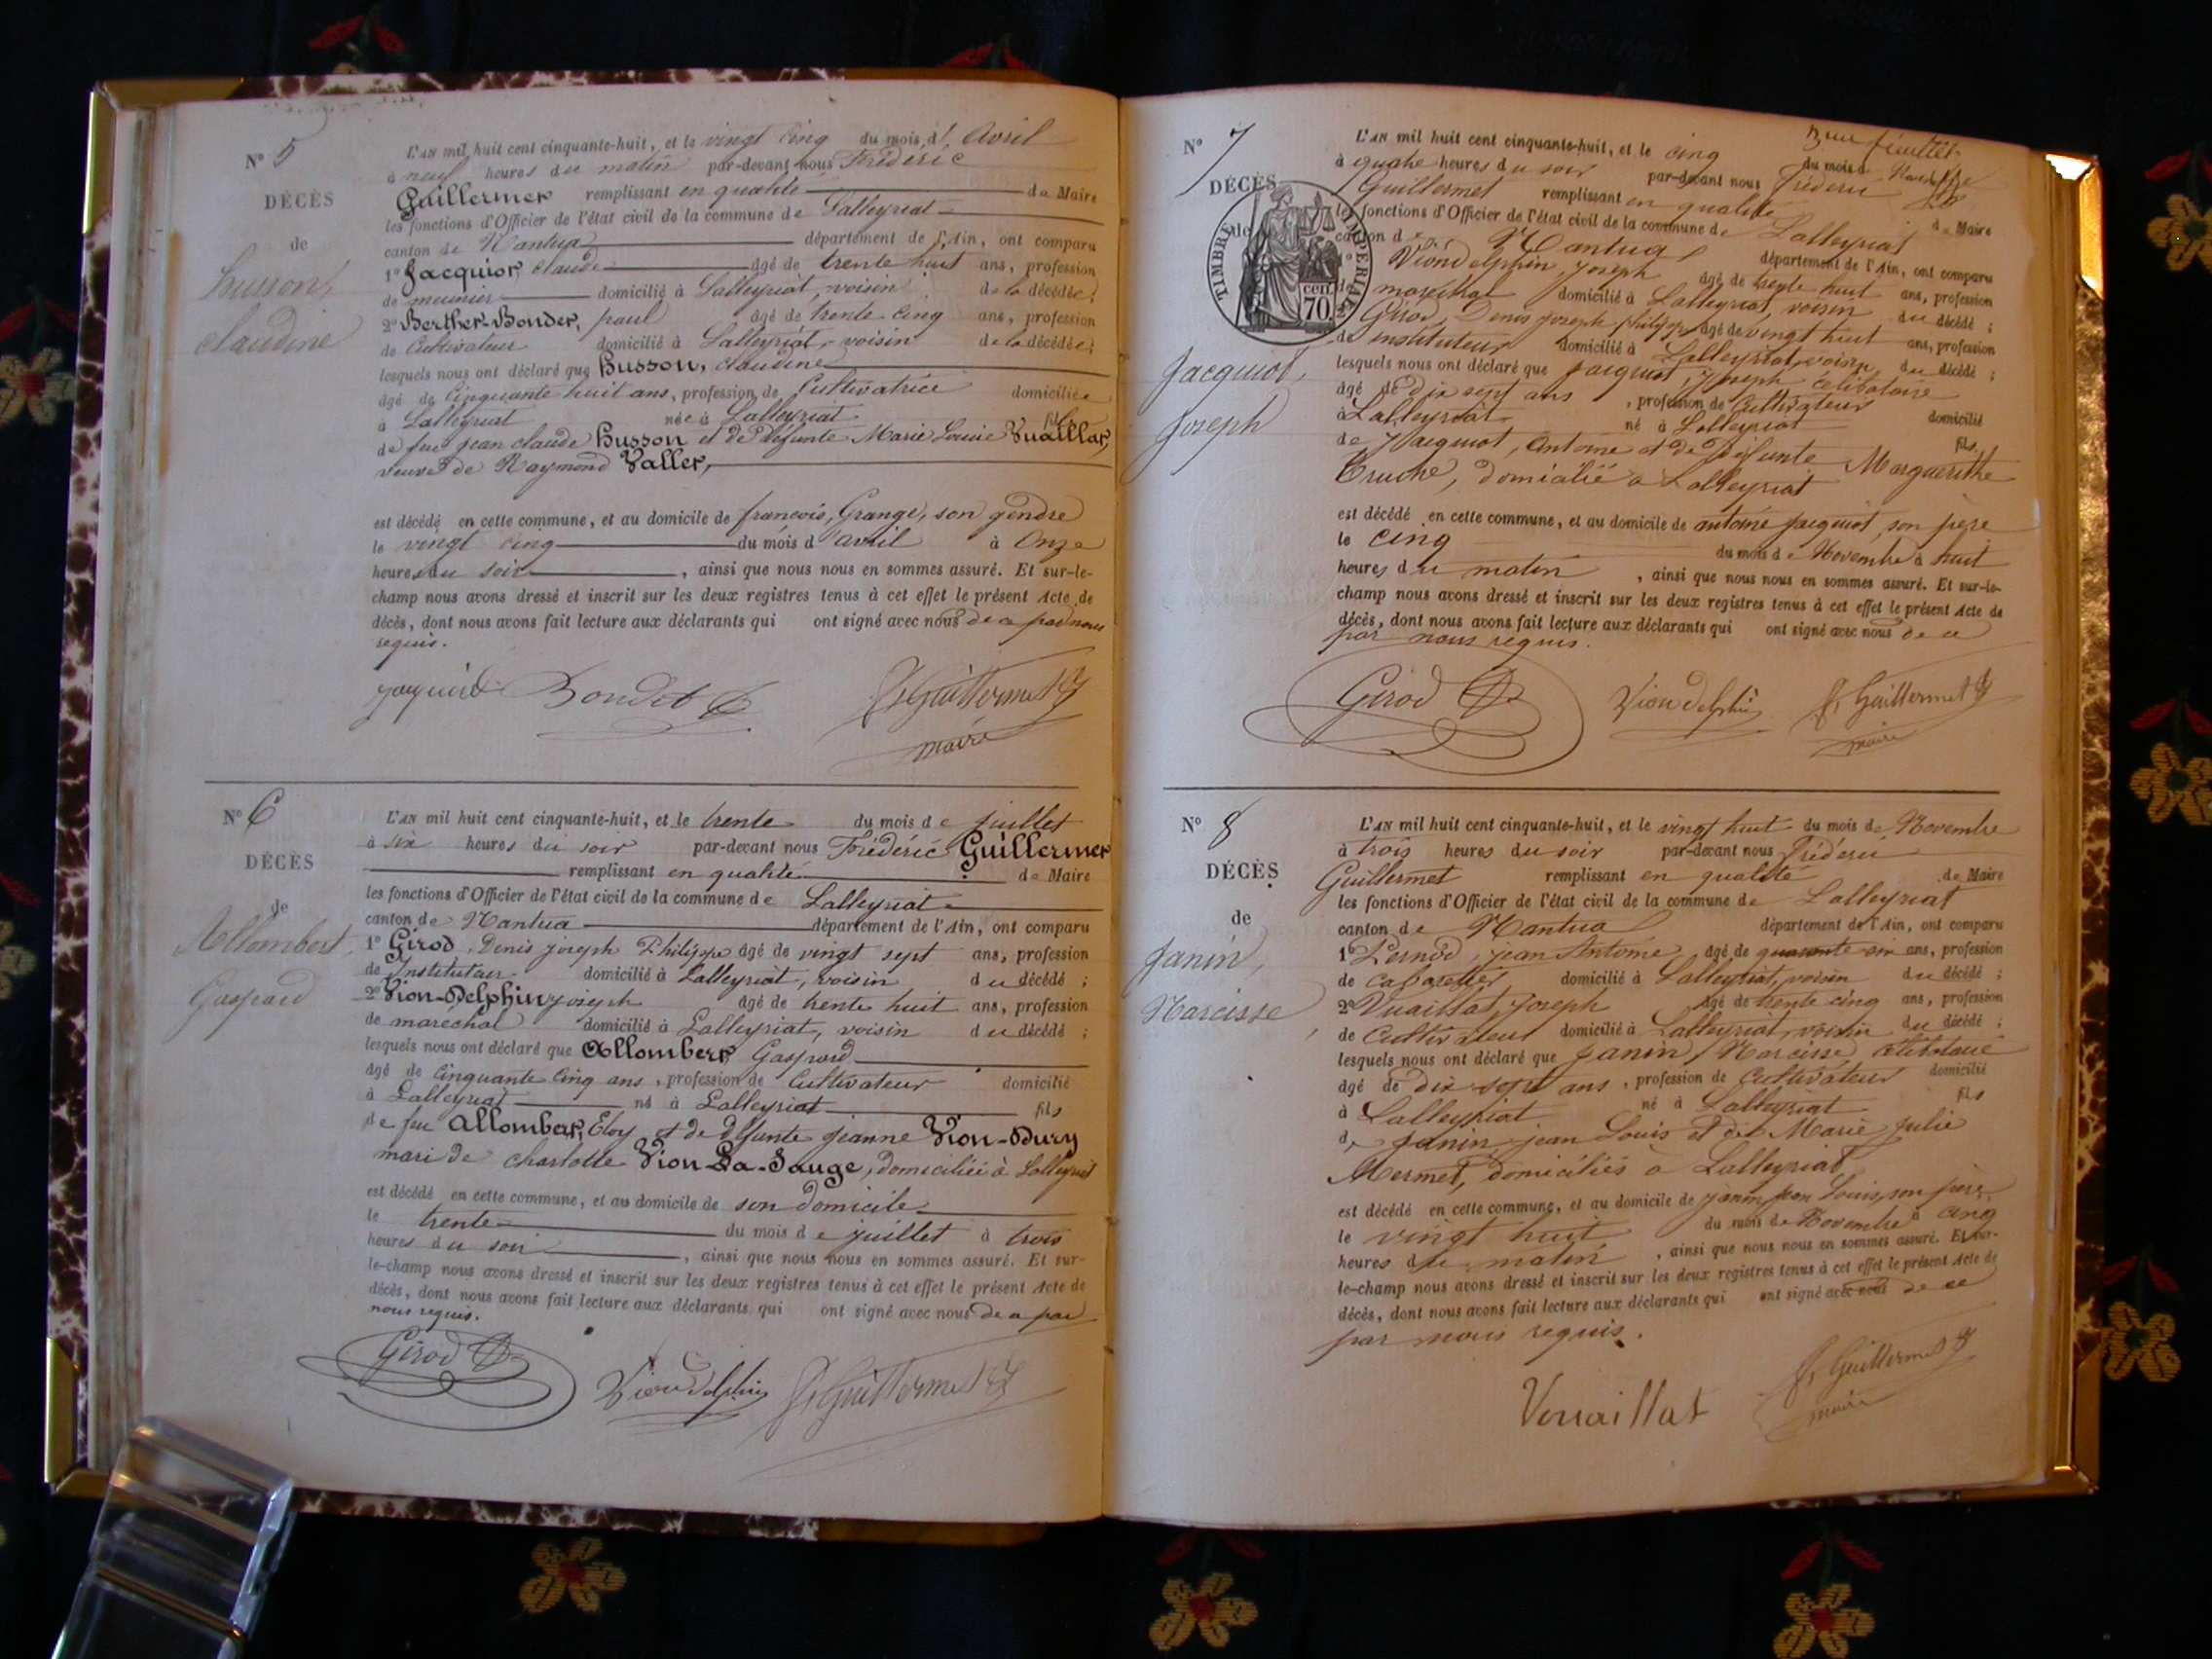 N° 5
DÉCÈS
de
husson,
claudine
L'AN mil huit cent cinquante-huit, et le vingt cinq du mois d' Avril
à neuf heures du matin par-devant nous Frédéric
Guillermet remplissant en qualité de Maire
les fonctions d'Officier de l'état civil de la commune de Lalleyriat
canton de Nantua département de l'Ain, ont comparu
1° Jacquiot, claude âgé de trente huit ans, profession
de meunier domicilié à Lalleyriat, voisin de la décédée;
2° Berthet-Bondet, paul âgé de trente cinq ans, profession
de Cultivateur domicilié à Lalleyriat, voisin de la décédée;
lesquels nous ont déclaré que husson, claudine
âgé de Cinquante huit ans, profession de Cultivatrice domiciliée
à Lalleyriat née à Lalleyriat fille
de feu jean claude husson et de défunte Marie Louise Vuaillat,
veuve de Raymond Vallet,
est décédé en cette commune, et au domicile de francois, Grange, son gendre
le vingt cinq du mois d'avril à Onze
heures du soir, ainsi que nous nous en sommes assuré. Et sur-le-
champ nous avons dressé et inscrit sur les deux registres tenus à cet effet le présent Acte de
décès, dont nous avons fait lecture aux déclarants qui ont signé avec nous de ce par nous
requis.
jacquiot Bondet F Guillermet
maire
N° 6
DÉCÈS
de
Allombert,
Gaspard
L'AN mil huit cent cinquante-huit, et le trente du mois de juillet
à six heures du soir par-devant nous Frédéric Guillermet
remplissant en qualité de Maire
les fonctions d'Officier de l'état civil de la commune de Lalleyriat
canton de Nantua département de l'Ain, ont comparu
1° Girod, Denis joseph Philippe âgé de vingt sept ans, profession
de Instituteur domicilié à Lalleyriat, voisin du décédé;
2° Vion-Delphin, joseph âgé de trente huit ans, profession
de maréchal domicilié à Lalleyriat, voisin du décédé;
lesquels nous ont déclaré que Allombert, Gaspard
âgé de Cinquante Cinq ans, profession de Cultivateur domicilié
à Lalleyriat né à Lalleyriat fils
de feu Allombert, Eloy et de défunte jeanne Vion-Dury
mari de charlotte Vion-La-Sauge, domiciliée à Lalleyriat
est décédé en cette commune, et au domicile de son domicile
le trente du mois de juillet à trois
heures du soir, ainsi que nous nous en sommes assuré. Et sur-
le-champ nous avons dressé et inscrit sur les deux registres tenus à cet effet le présent Acte de
décès, dont nous avons fait lecture aux déclarants qui ont signé avec nous de ce par
nous requis.
Girod Vion delphin F Guillermet
3me feuillet
N° 7
DÉCÈS
de
TIMBRE IMPERIAL
70 cen.
Jacquiot,
Joseph
L'AN mil huit cent cinquante-huit, et le cinq du mois de Novembre
à quatre heures du soir par-devant nous Frédéric
Guillermet remplissant en qualité de Maire
les fonctions d'Officier de l'état civil de la commune de Lalleyriat
canton de Nantua département de l'Ain, ont comparu
1° Vion delphin, joseph âgé de trente huit ans, profession
de maréchal domicilié à Lalleyriat, voisin du décédé;
Girod, Denis joseph philippe âgé de vingt huit ans, profession
de instituteur domicilié à Lalleyriat, voisin du décédé;
lesquels nous ont déclaré que Jacquiot, Joseph célibataire
âgé de dix sept ans, profession de Cultivateur domicilié
à Lalleyriat né à Lalleyriat fils
de Jacquiot, Antoine et de défunte Marguerithe
Truche, domicilié à Lalleyriat
est décédé en cette commune, et au domicile de antoine jacquiot, son père
le cinq du mois de Novembre à huit
heures du matin, ainsi que nous nous en sommes assuré. Et sur-le-
champ nous avons dressé et inscrit sur les deux registres tenus à cet effet le présent Acte de
décès, dont nous avons fait lecture aux déclarants qui ont signé avec nous de ce
par nous requis.
Girod Vion delphin F Guillermet
maire
N° 8
DÉCÈS
de
Janin,
Narcisse
L'AN mil huit cent cinquante-huit, et le vingt huit du mois de Novembre
à trois heures du soir par-devant nous Fréderic
Guillermet remplissant en qualité de Maire
les fonctions d'Officier de l'état civil de la commune de Lalleyriat
canton de Nantua département de l'Ain, ont comparu
1° Lernod, jean Antoine âgé de quarante six ans, profession
de cabaretier domicilié à Lalleyriat, voisin du décédé;
2° Vuaillat, Joseph âgé de trente cinq ans, profession
de Cultivateur domicilié à Lalleyriat, voisin du décédé;
lesquels nous ont déclaré que Janin, Narcisse, célibataire
âgé de dix sept ans, profession de Cultivateur domicilié
à Lalleyriat né à Lalleyriat fils
de Janin jean Louis et de Marie Julie
Mermet, domiciliés à Lalleyriat
est décédé en cette commune, et au domicile de janin jean Louis, son père,
le vingt huit du mois de Novembre à cinq
heures du matin, ainsi que nous nous en sommes assuré. Et sur-
le-champ nous avons dressé et inscrit sur les deux registres tenus à cet effet le présent Acte de
décès, dont nous avons fait lecture aux déclarants qui ont signé avec nous de ce
par nous requis.
Vuaillat F Guillermet
maire